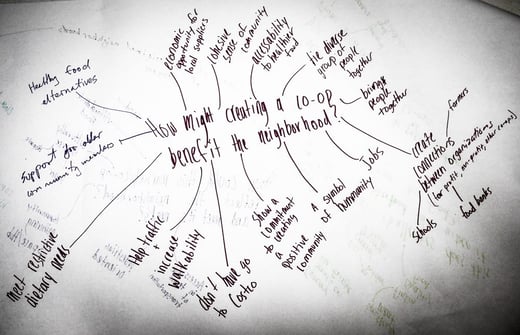 How might creating a CO-OP
benefit the neighborhood?
economic
opportunity for
local suppliers
cohesive
sense of
community
accessability
to healthier
food
tie diverse
group of
people
together
brings
people
together
create
connections
between organizations
farmers
food banks
schools
Jobs
A symbol
of humanity
show a
commitment
to creating
a
positive
community
don't have go
to Costco
Help traffic
+
increase
walkability
meet restrictive
dietary needs
support for older
community members
Healthy food
alternatives